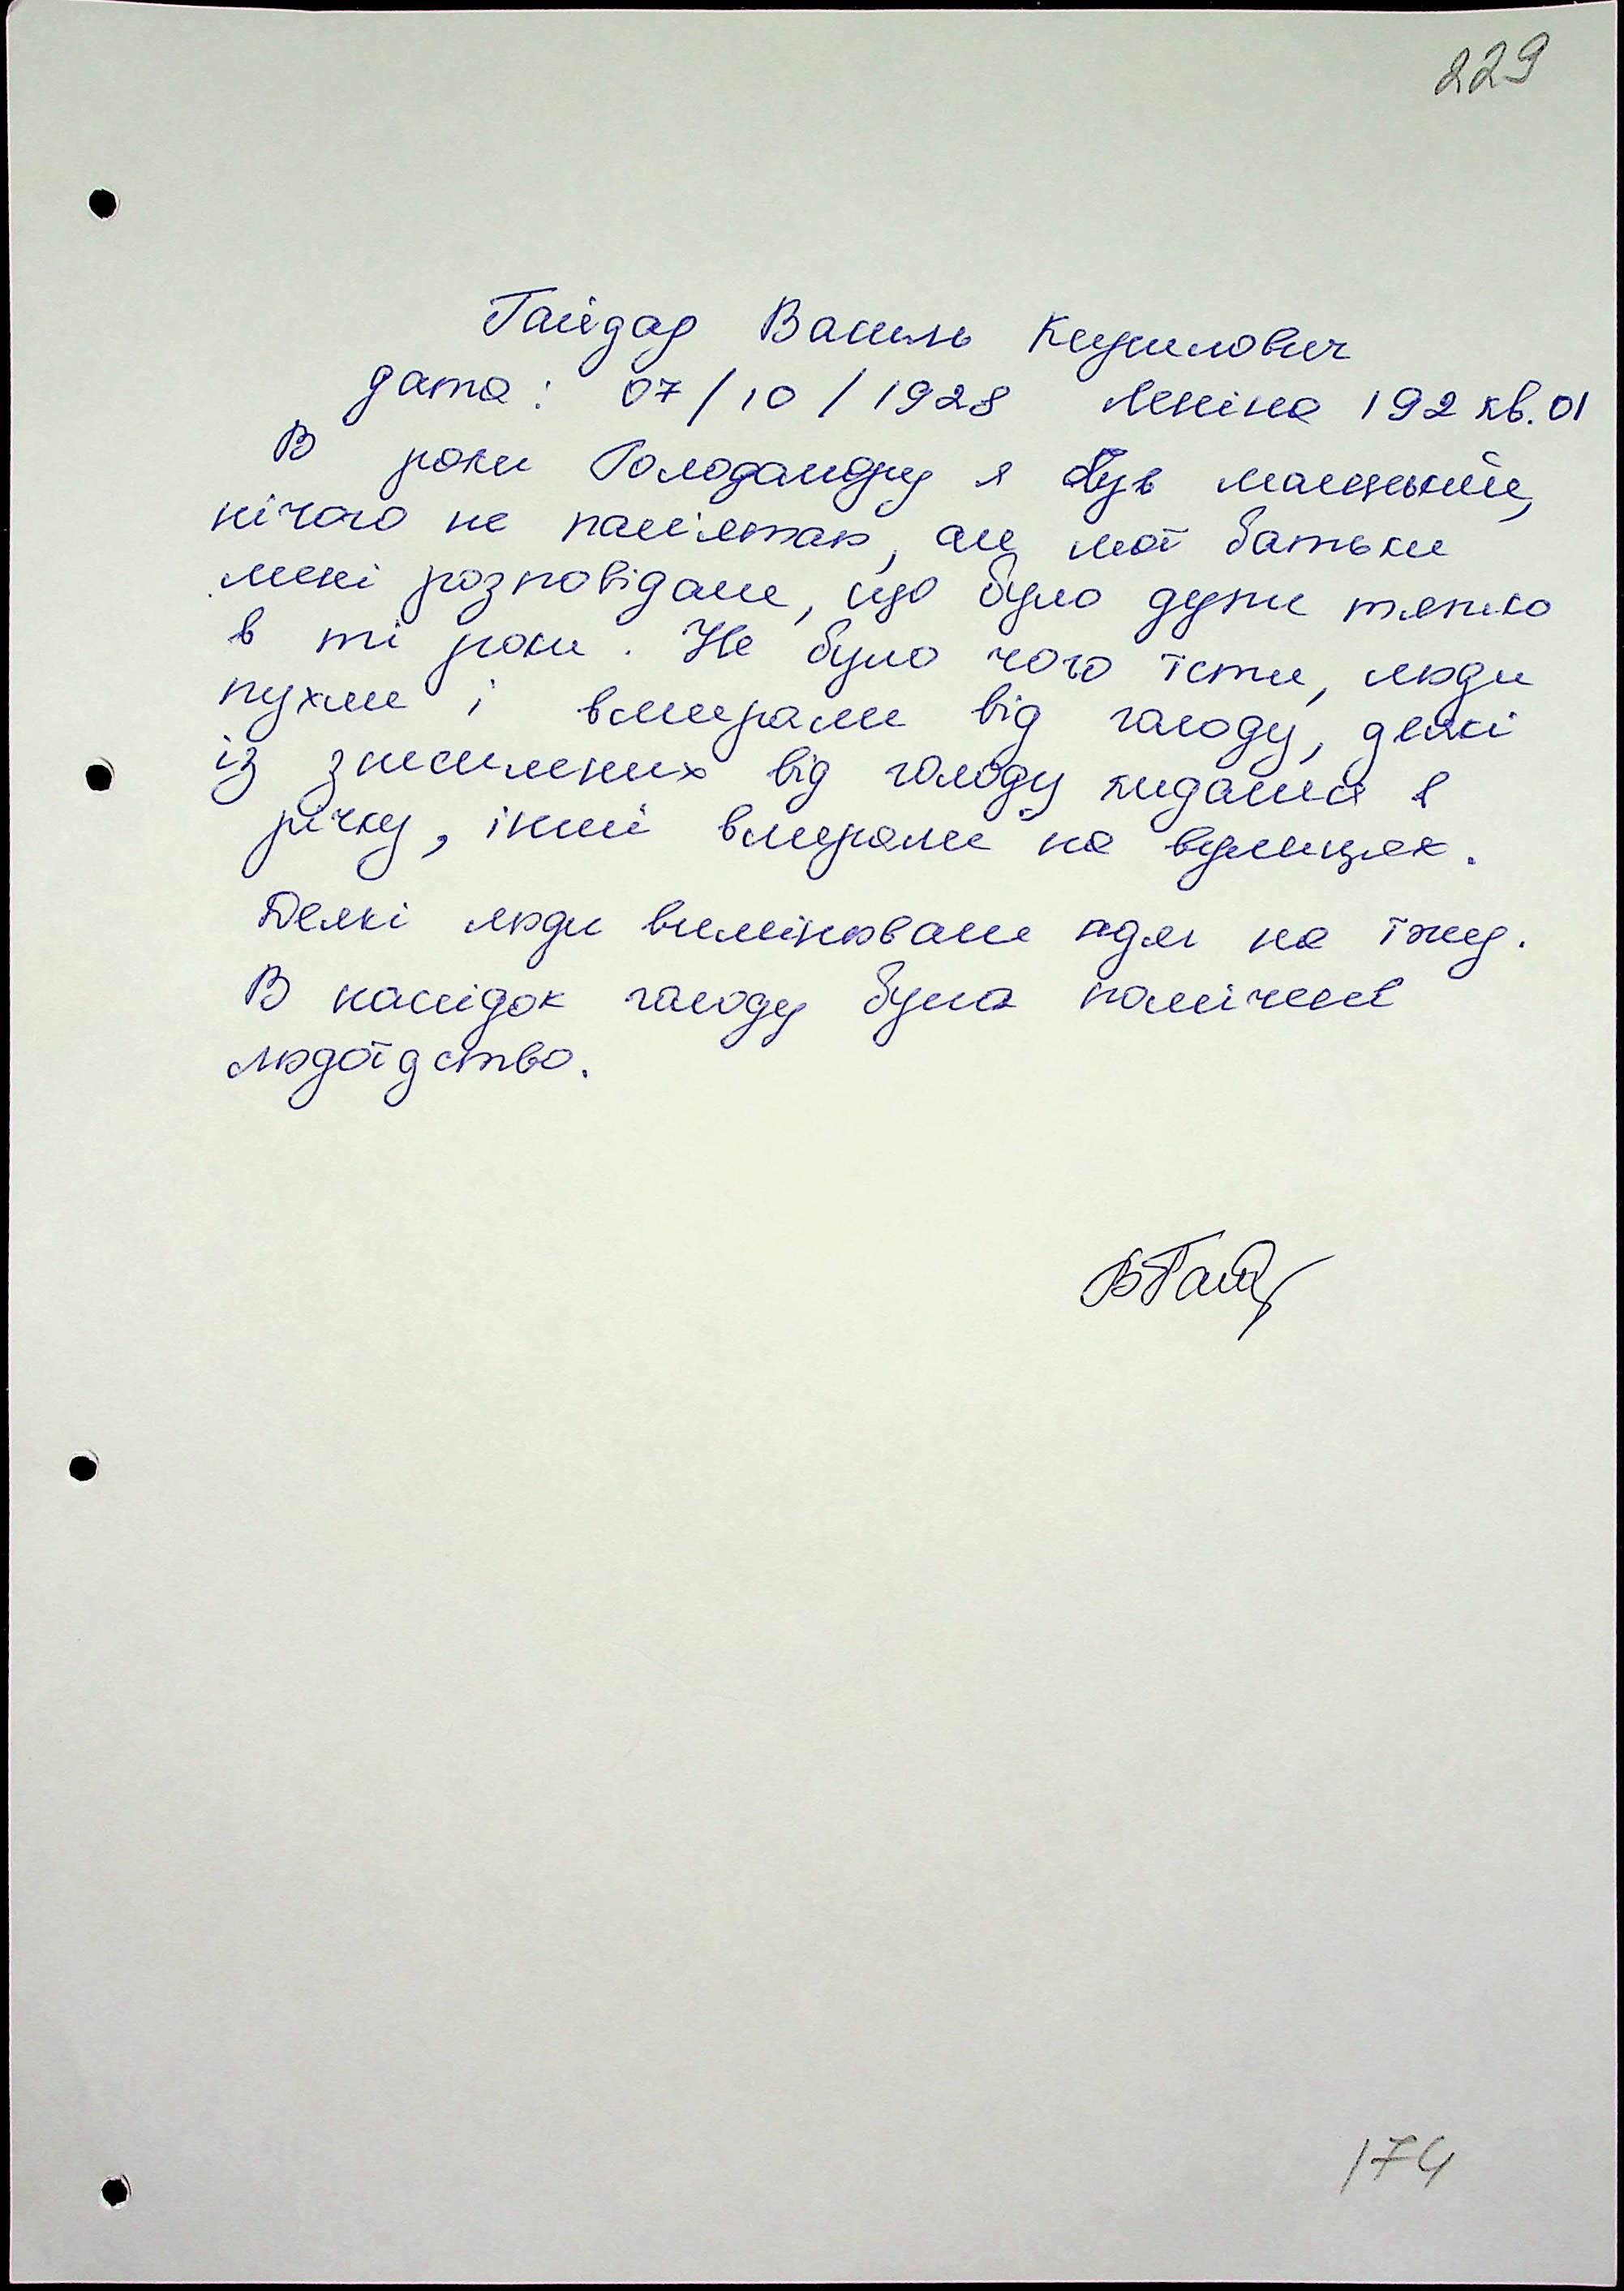 229
Гайдар Василь Кирилович
дата: 07/10/1928 Леніна 192 кв. 01
В роки Голодомору я був маленький,
нічого не пам'ятаю, але мої батьки
мені розповідали, що було дуже тяжко
в ті роки. Не було чого їсти, люди
пухли і вмирали від голоду, деякі
із знесилених від голоду кидались в
річку, інші вмирали на вулицях.
Деякі люди вимінювали одяг на їжу.
В наслідок голоду було помічене
людоїдство.
ВГай
174